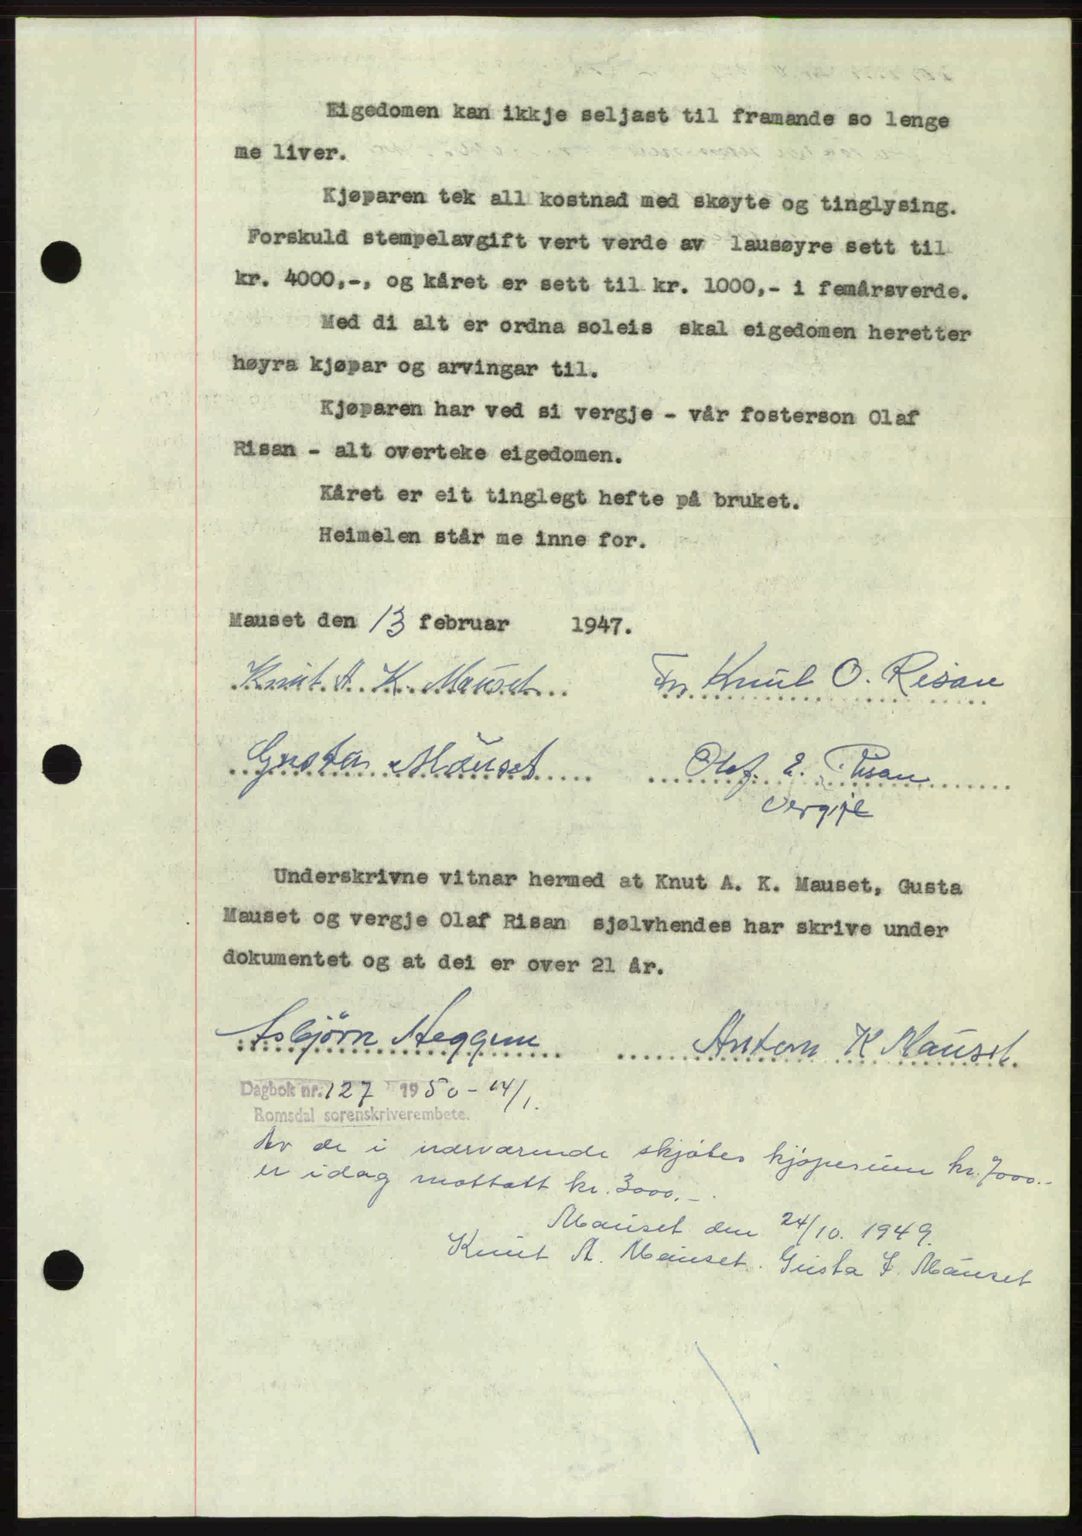 Eigedomen kan ikkje seljast til framande so lenge
me liver.
Kjøparen tek all kostnad med skøyte og tinglysing.
Forskuld stempelavgift vert verde av lausøyre sett til
kr. 4000,-, og kåret er sett til kr. 1000,- i femårsverde.
Med di alt er ordna soleis skal eigedomen heretter
høyra kjøpar og arvingar til.
Kjøparen har ved si vergje - vår fosterson Olaf
Risan - alt overteke eigedomen.
Kåret er eit tinglegt hefte på bruket.
Heimelen står me inne for.
Mauset den 13 februar 1947.
Knut A. K. Mauset Fr. Knut O. Risan
Gusta Mauset Olaf E. Risan
vergje
Underskrivne vitnar hermed at Knut A. K. Mauset, Gusta
Mauset og vergje Olaf Risan sjølvhendes har skrive under
dokumentet og at dei er over 21 år.
Asbjørn Heggem Anton K Mauset.
Dagbok nr. 127 1950 - 14/1.
Romsdal sorenskriverembete.
Av de i nærværende skjøtes kjøpesum kr. 7000.-
er idag mottatt kr. 3000.-
Mauset den 24/10. 1949.
Knut A. Mauset. Gusta F. Mauset